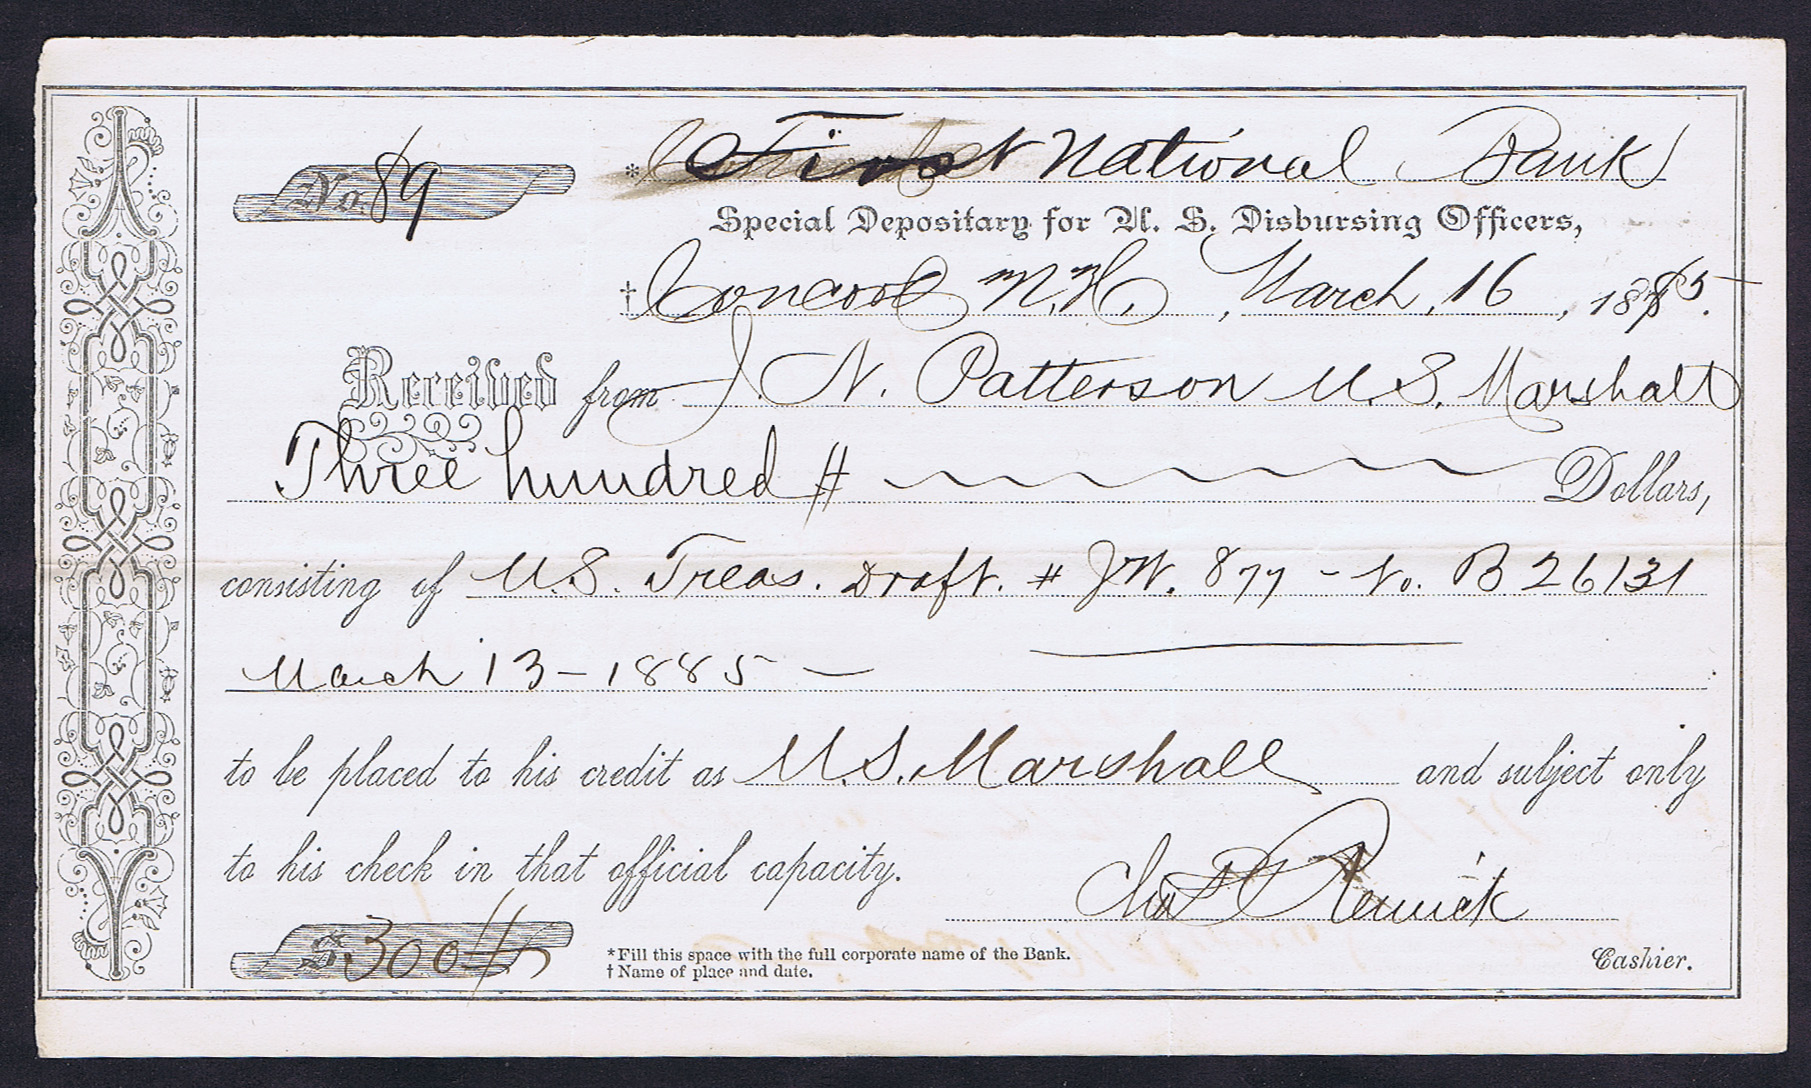 No. 89
* First National Bank
Special Depositary for U. S. Disbursing Officers,
† Concord N.H., March, 16, 1885.
Received from J. N. Patterson U.S. Marshall
Three hundred # Dollars,
consisting of U.S. Treas. Draft. # J.W. 877 - No. B 26131
March 13 - 1885 -
to be placed to his credit as U.S. Marshall and subject only
to his check in that official capacity.
Chas
$ 300
*Fill this space with the full corporate name of the Bank.
† Name of place and date.
Cashier.